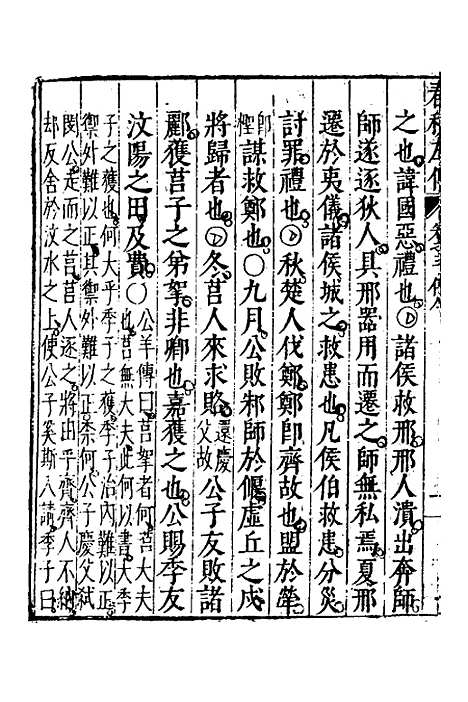 春秋左傳
之也諱國惡禮也○諸侯救邢邢人潰出奔師
師遂逐狄人具邢器用而遷之師無私焉夏邢
遷於夷儀諸侯城之救患也凡侯伯救患分災
討罪禮也○秋楚人伐鄭鄭即齊故也盟於犖
即檉謀救鄭也○九月公敗邾師於偃虛丘之戍
將歸者也○冬莒人來求賂還慶父故公子友敗諸
酈獲莒子之弟挐非卿也嘉獲之也公賜季友
汶陽之田及費○公羊傳曰莒挐者何莒大夫
也莒無大夫此何以書大季
子之獲也何大乎季子之獲季子治內難以正
禦外難以正其禦外難以正柰何公子慶父弒
閔公走而之莒莒人逐之將由乎齊齊人不納
却反舍於汶水之上使公子奚斯入請季子曰